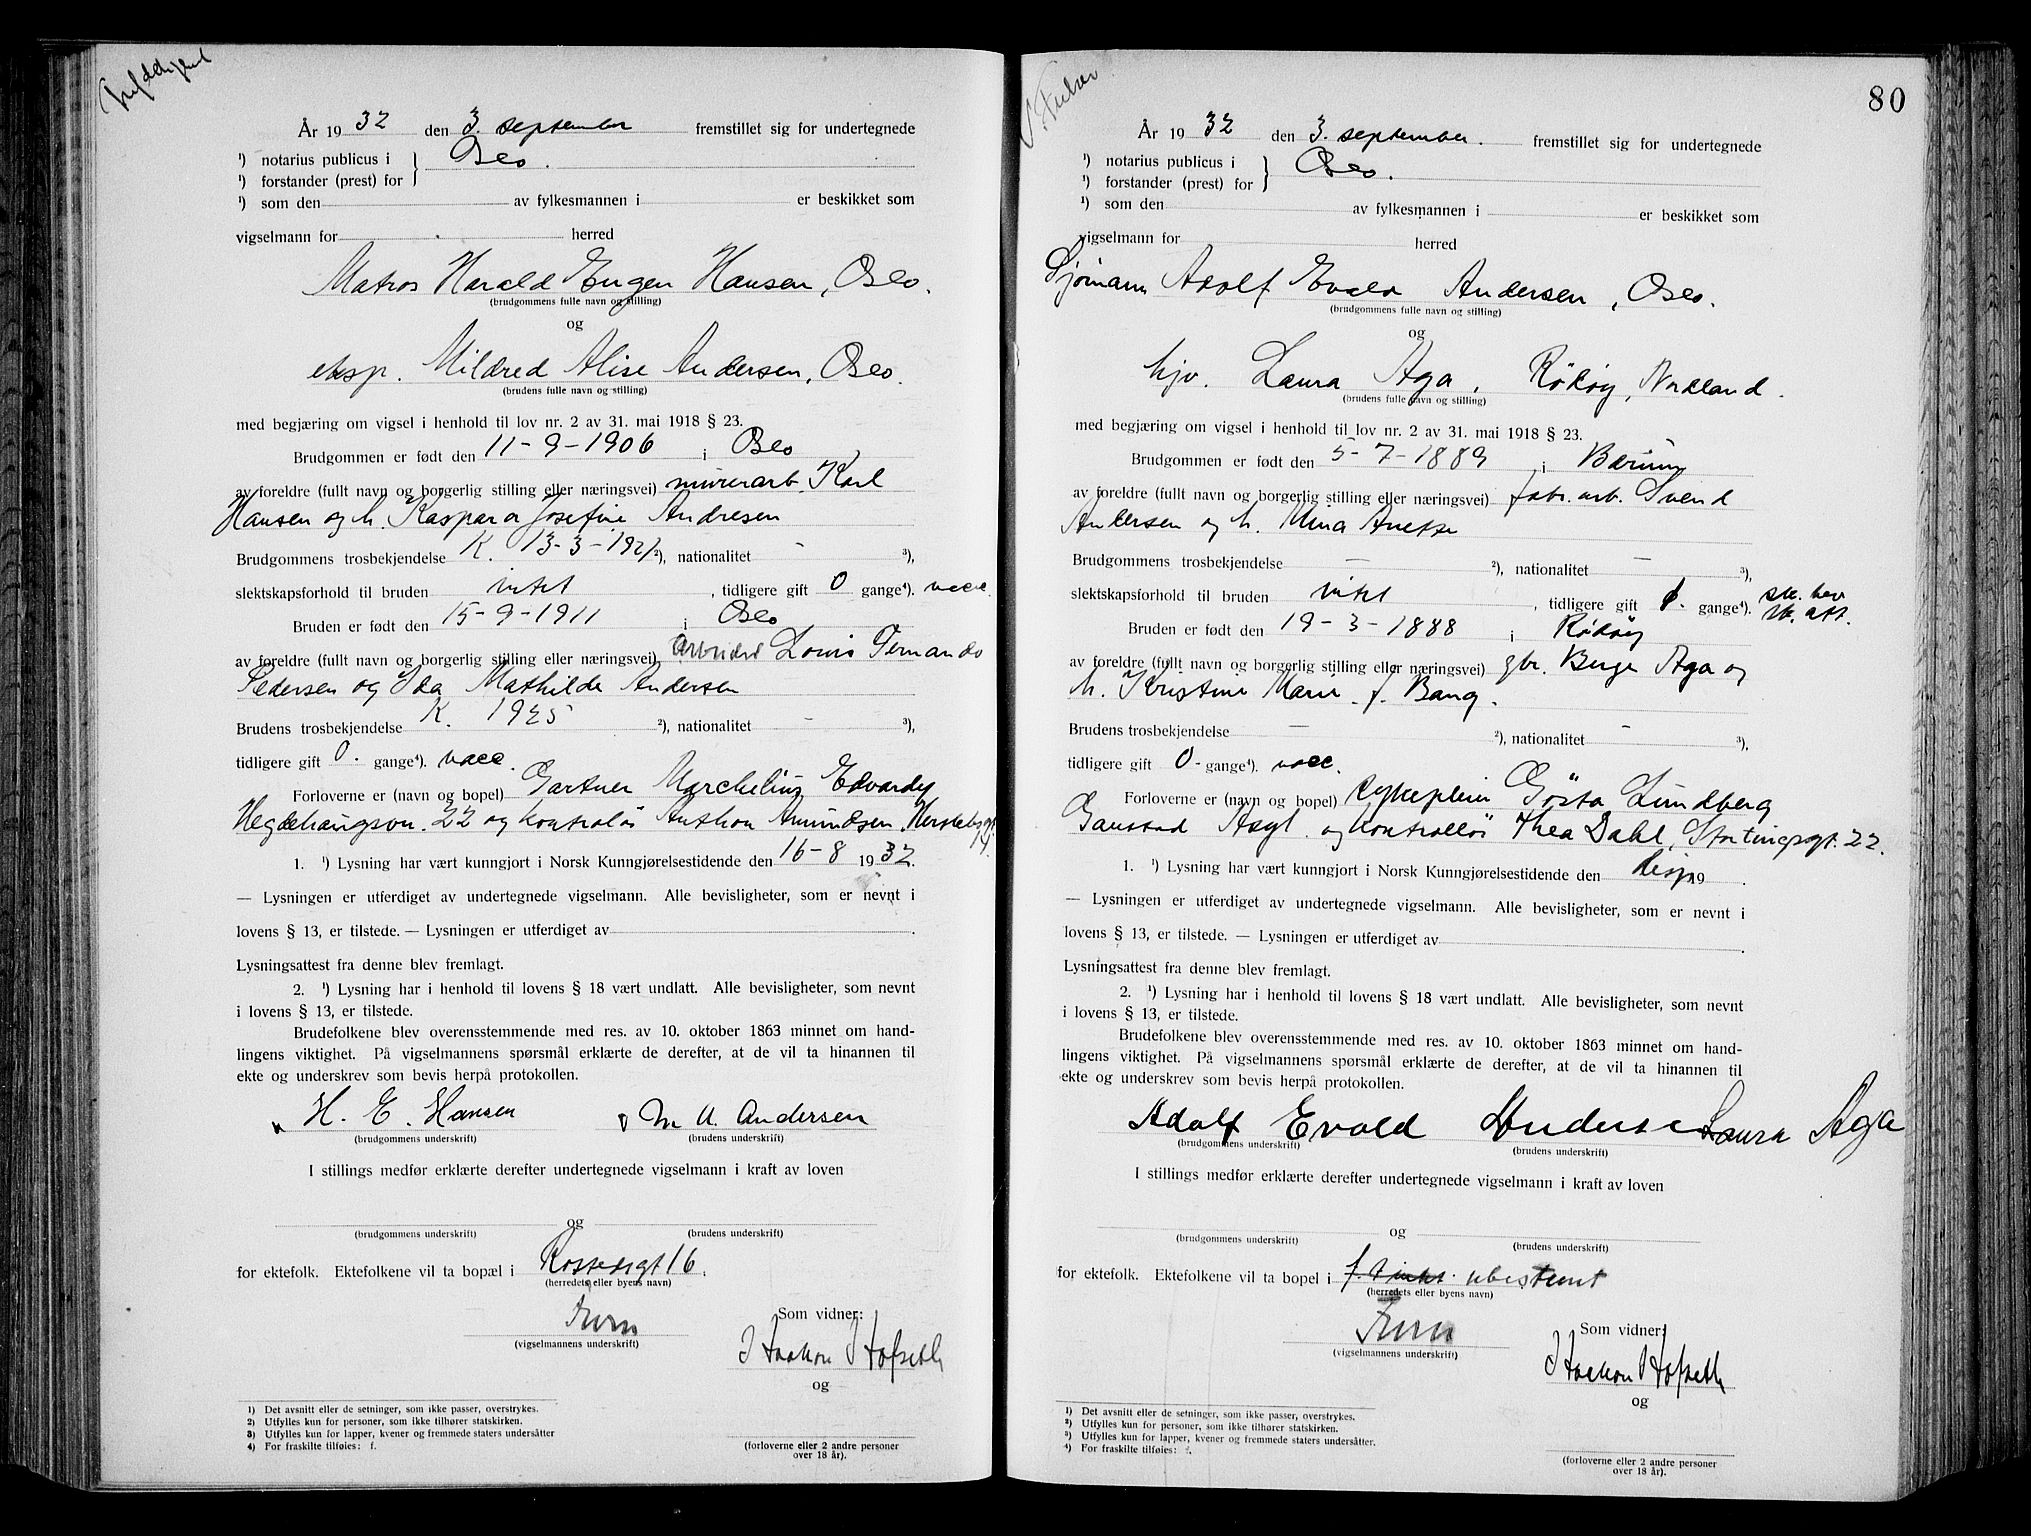 År 1932 den 3. september fremstillet sig for undertegnede
¹) notarius publicus i } Oslo.
¹) forstander (prest) for
¹) som den av fylkesmannen i er beskikket som
vigselmann for herred
Matros Harald Eugen Hansen, Oslo.
(brudgommens fulle navn og stilling)
og
eksp. Mildred Alise Andersen, Oslo.
(brudens fulle navn og stilling)
med begjæring om vigsel i henhold til lov nr. 2 av 31. mai 1918 § 23.
Brudgommen er født den 11-9-1906 i Oslo
av foreldre (fullt navn og borgerlig stilling eller næringsvei) murerarb. Karl
Hansen og h. Kaspara Josefine Andresen
Brudgommens trosbekjendelse K. 13-3-1921 ²), nationalitet - ³),
slektskapsforhold til bruden intet, tidligere gift 0 gange⁴). vacc.
Bruden er født den 15-9-1911 i Oslo
av foreldre (fullt navn og borgerlig stilling eller næringsvei) arbeider Louis Fernando
Pedersen og Ida Mathilde Andersen
Brudens trosbekjendelse K. 1925 ²), nationalitet - ³),
tidligere gift 0. gange⁴). vacc.
Forloverne er (navn og bopel) Gartner Marchelius Edvardsen
Hegdehaugsvn. 22 og kontrolør Anthon Amundsen,
1. ¹) Lysning har vært kunngjort i Norsk Kunngjørelsestidende den 16-8 1932.
— Lysningen er utferdiget av undertegnede vigselmann. Alle bevisligheter, som er nevnt i
lovens § 13, er tilstede. — Lysningen er utferdiget av
Lysningsattest fra denne blev fremlagt.
2. ¹) Lysning har i henhold til lovens § 18 vært undlatt. Alle bevisligheter, som nevnt
i lovens § 13, er tilstede.
Brudefolkene blev overensstemmende med res. av 10. oktober 1863 minnet om hand-
lingens viktighet. På vigselmannens spørsmål erklærte de derefter, at de vil ta hinannen til
ekte og underskrev som bevis herpå protokollen.
H. E. Hansen M A. Andersen
(brudgommens underskrift) (brudens underskrift)
I stillings medfør erklærte derefter undertegnede vigselmann i kraft av loven
og
(brudgommens underskrift) (brudens underskrift)
for ektefolk. Ektefolkene vil ta bopæl i 16.
(herredets eller byens navn)
Som vidner:
(vigselmannens underskrift)
Haakon Hofseth
og
1) Det avsnitt eller de setninger, som ikke passer, overstrykes.
2) Utfylles kun for personer, som ikke tilhører statskirken.
3) Utfylles kun for lapper, kvener og fremmede staters undersåtter
4) For fraskilte tilføies: f.
(forloverne eller 2 andre personer
over 18 år).
80
År 1932 den 3. september. fremstillet sig for undertegnede
¹) notarius publicus i } Oslo.
¹) forstander (prest) for
¹) som den av fylkesmannen i er beskikket som
vigselmann for herred
Sjømann Adolf Evald Andersen, Oslo.
(brudgommens fulle navn og stilling)
og
hjv. Laura Aga, Rødøy, Nordland.
(brudens fulle navn og stilling)
med begjæring om vigsel i henhold til lov nr. 2 av 31. mai 1918 § 23.
Brudgommen er født den 5-7-1889 i Bærum
av foreldre (fullt navn og borgerlig stilling eller næringsvei) fabr. arb. Svend
Andersen og h. Mina Anette
Brudgommens trosbekjendelse — ²), nationalitet — ³),
slektskapsforhold til bruden intet, tidligere gift 1. gange⁴). sk. bev
sk. att.
Bruden er født den 19-3-1888 i Rødøy
av foreldre (fullt navn og borgerlig stilling eller næringsvei) gbr. Berge Aga og
h. Kristine Marie f. Bang.
Brudens trosbekjendelse — ²), nationalitet - ³),
tidligere gift 0- gange⁴). vacc.
Forloverne er (navn og bopel) sykepleier Gösta Lundberg
Gaustad Asyl og kontrollør Thea Dahl, Stortingsgt. 22.
1. ¹) Lysning har vært kunngjort i Norsk Kunngjørelsestidende den disp. 19 .
— Lysningen er utferdiget av undertegnede vigselmann. Alle bevisligheter, som er nevnt i
lovens § 13, er tilstede. — Lysningen er utferdiget av
Lysningsattest fra denne blev fremlagt.
2. ¹) Lysning har i henhold til lovens § 18 vært undlatt. Alle bevisligheter, som nevnt
i lovens § 13, er tilstede.
Brudefolkene blev overensstemmende med res. av 10. oktober 1863 minnet om hand-
lingens viktighet. På vigselmannens spørsmål erklærte de derefter, at de vil ta hinannen til
ekte og underskrev som bevis herpå protokollen.
Adolf Evald Andersen Laura Aga
(brudgommens underskrift) (brudens underskrift)
I stillings medfør erklærte derefter undertegnede vigselmann i kraft av loven
og
(brudgommens underskrift) (brudens underskrift)
for ektefolk. Ektefolkene vil ta bopel i ubestemt
(herredets eller byens navn)
Som vidner:
(vigselmannens underskrift)
Haakon Hofseth
og
1) Det avsnitt eller de setninger, som ikke passer, overstrykes.
2) Utfylles kun for personer, som ikke tilhører statskirken.
3) Utfylles kun for lapper, kvener og fremmede staters undersåtter.
4) For fraskilte tilføies: f.
(forloverne eller 2 andre personer
over 18 år).